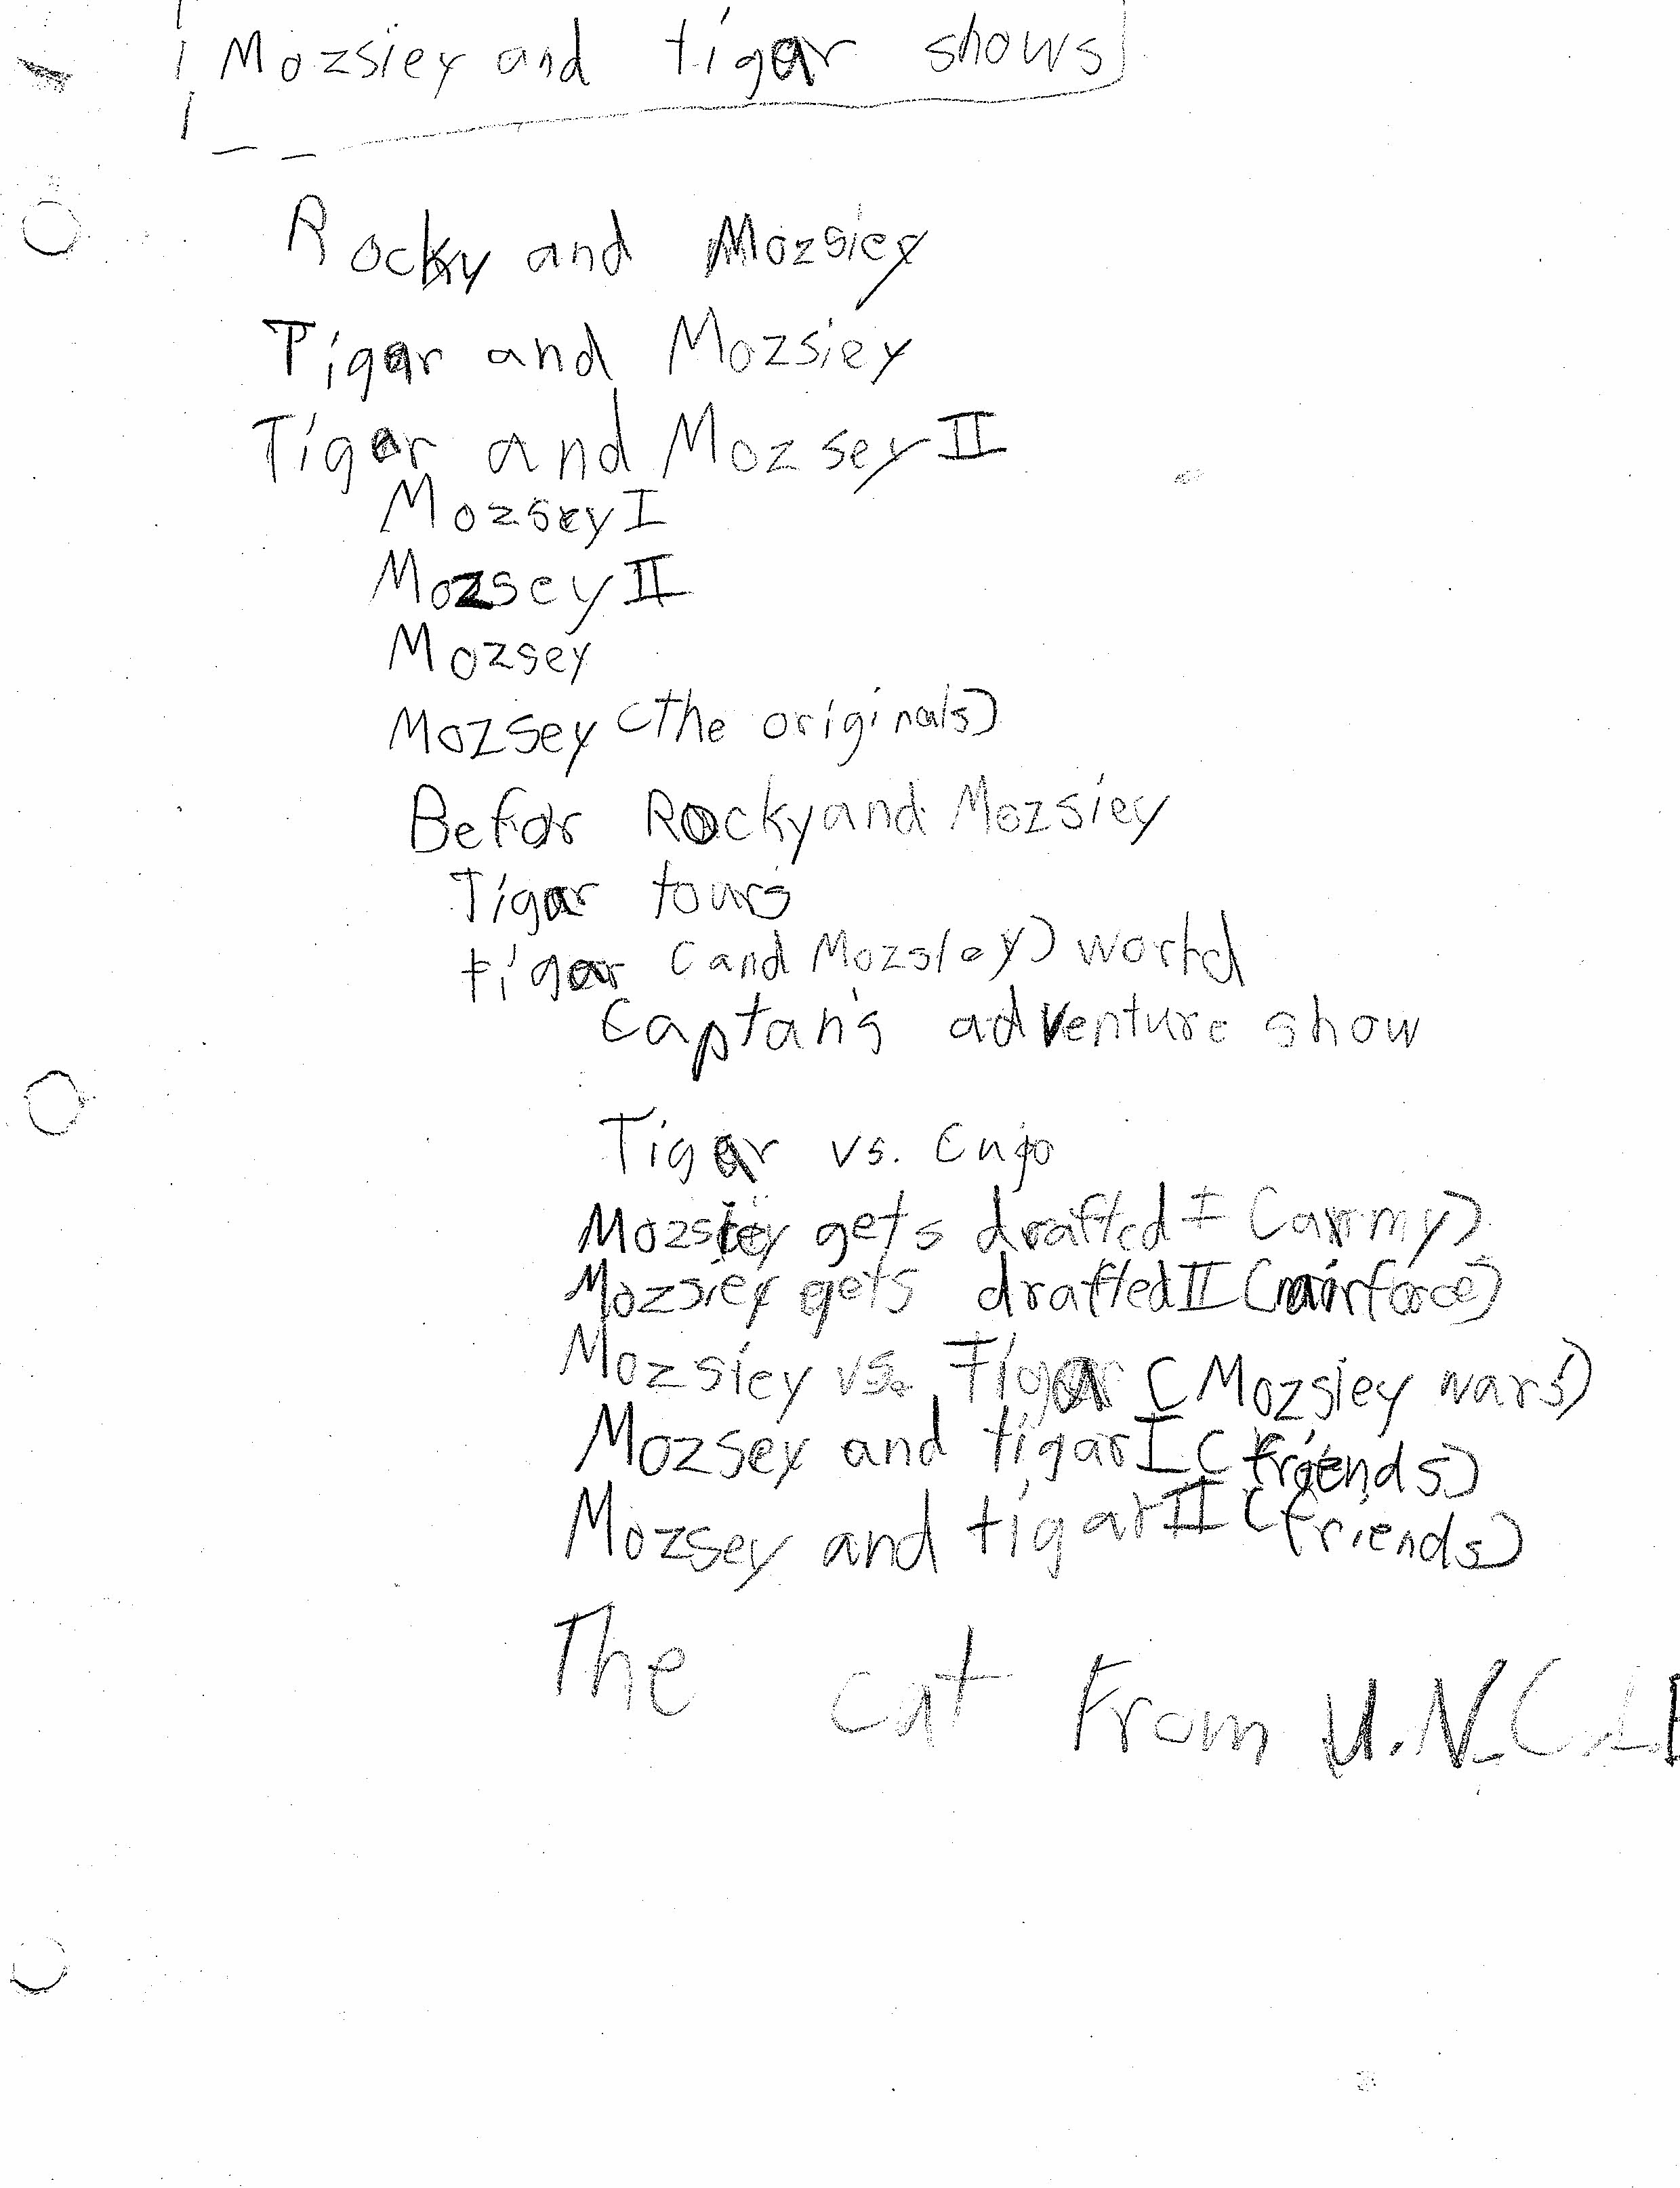 Mozsiey and tigar shows
Rocky and Mozsiey
Tigar and Mozsiey
Tigar and Mozsey II
Mozsey I
Mozsey II
Mozsey
Mozsey (the originals)
Befor Rocky and Mozsiey
Tigar tours
tigar (and Mozsiey) world
Captan's adventure show
Tigar vs. Cujo
Mozsiey gets drafted I (army)
Mozsiey gets drafted II (airforce)
Mozsiey vs. Tigar (Mozsiey wars)
Mozsey and tigar I (friends)
Mozsey and tigar II (friends)
The cat from U.N.C.L.E